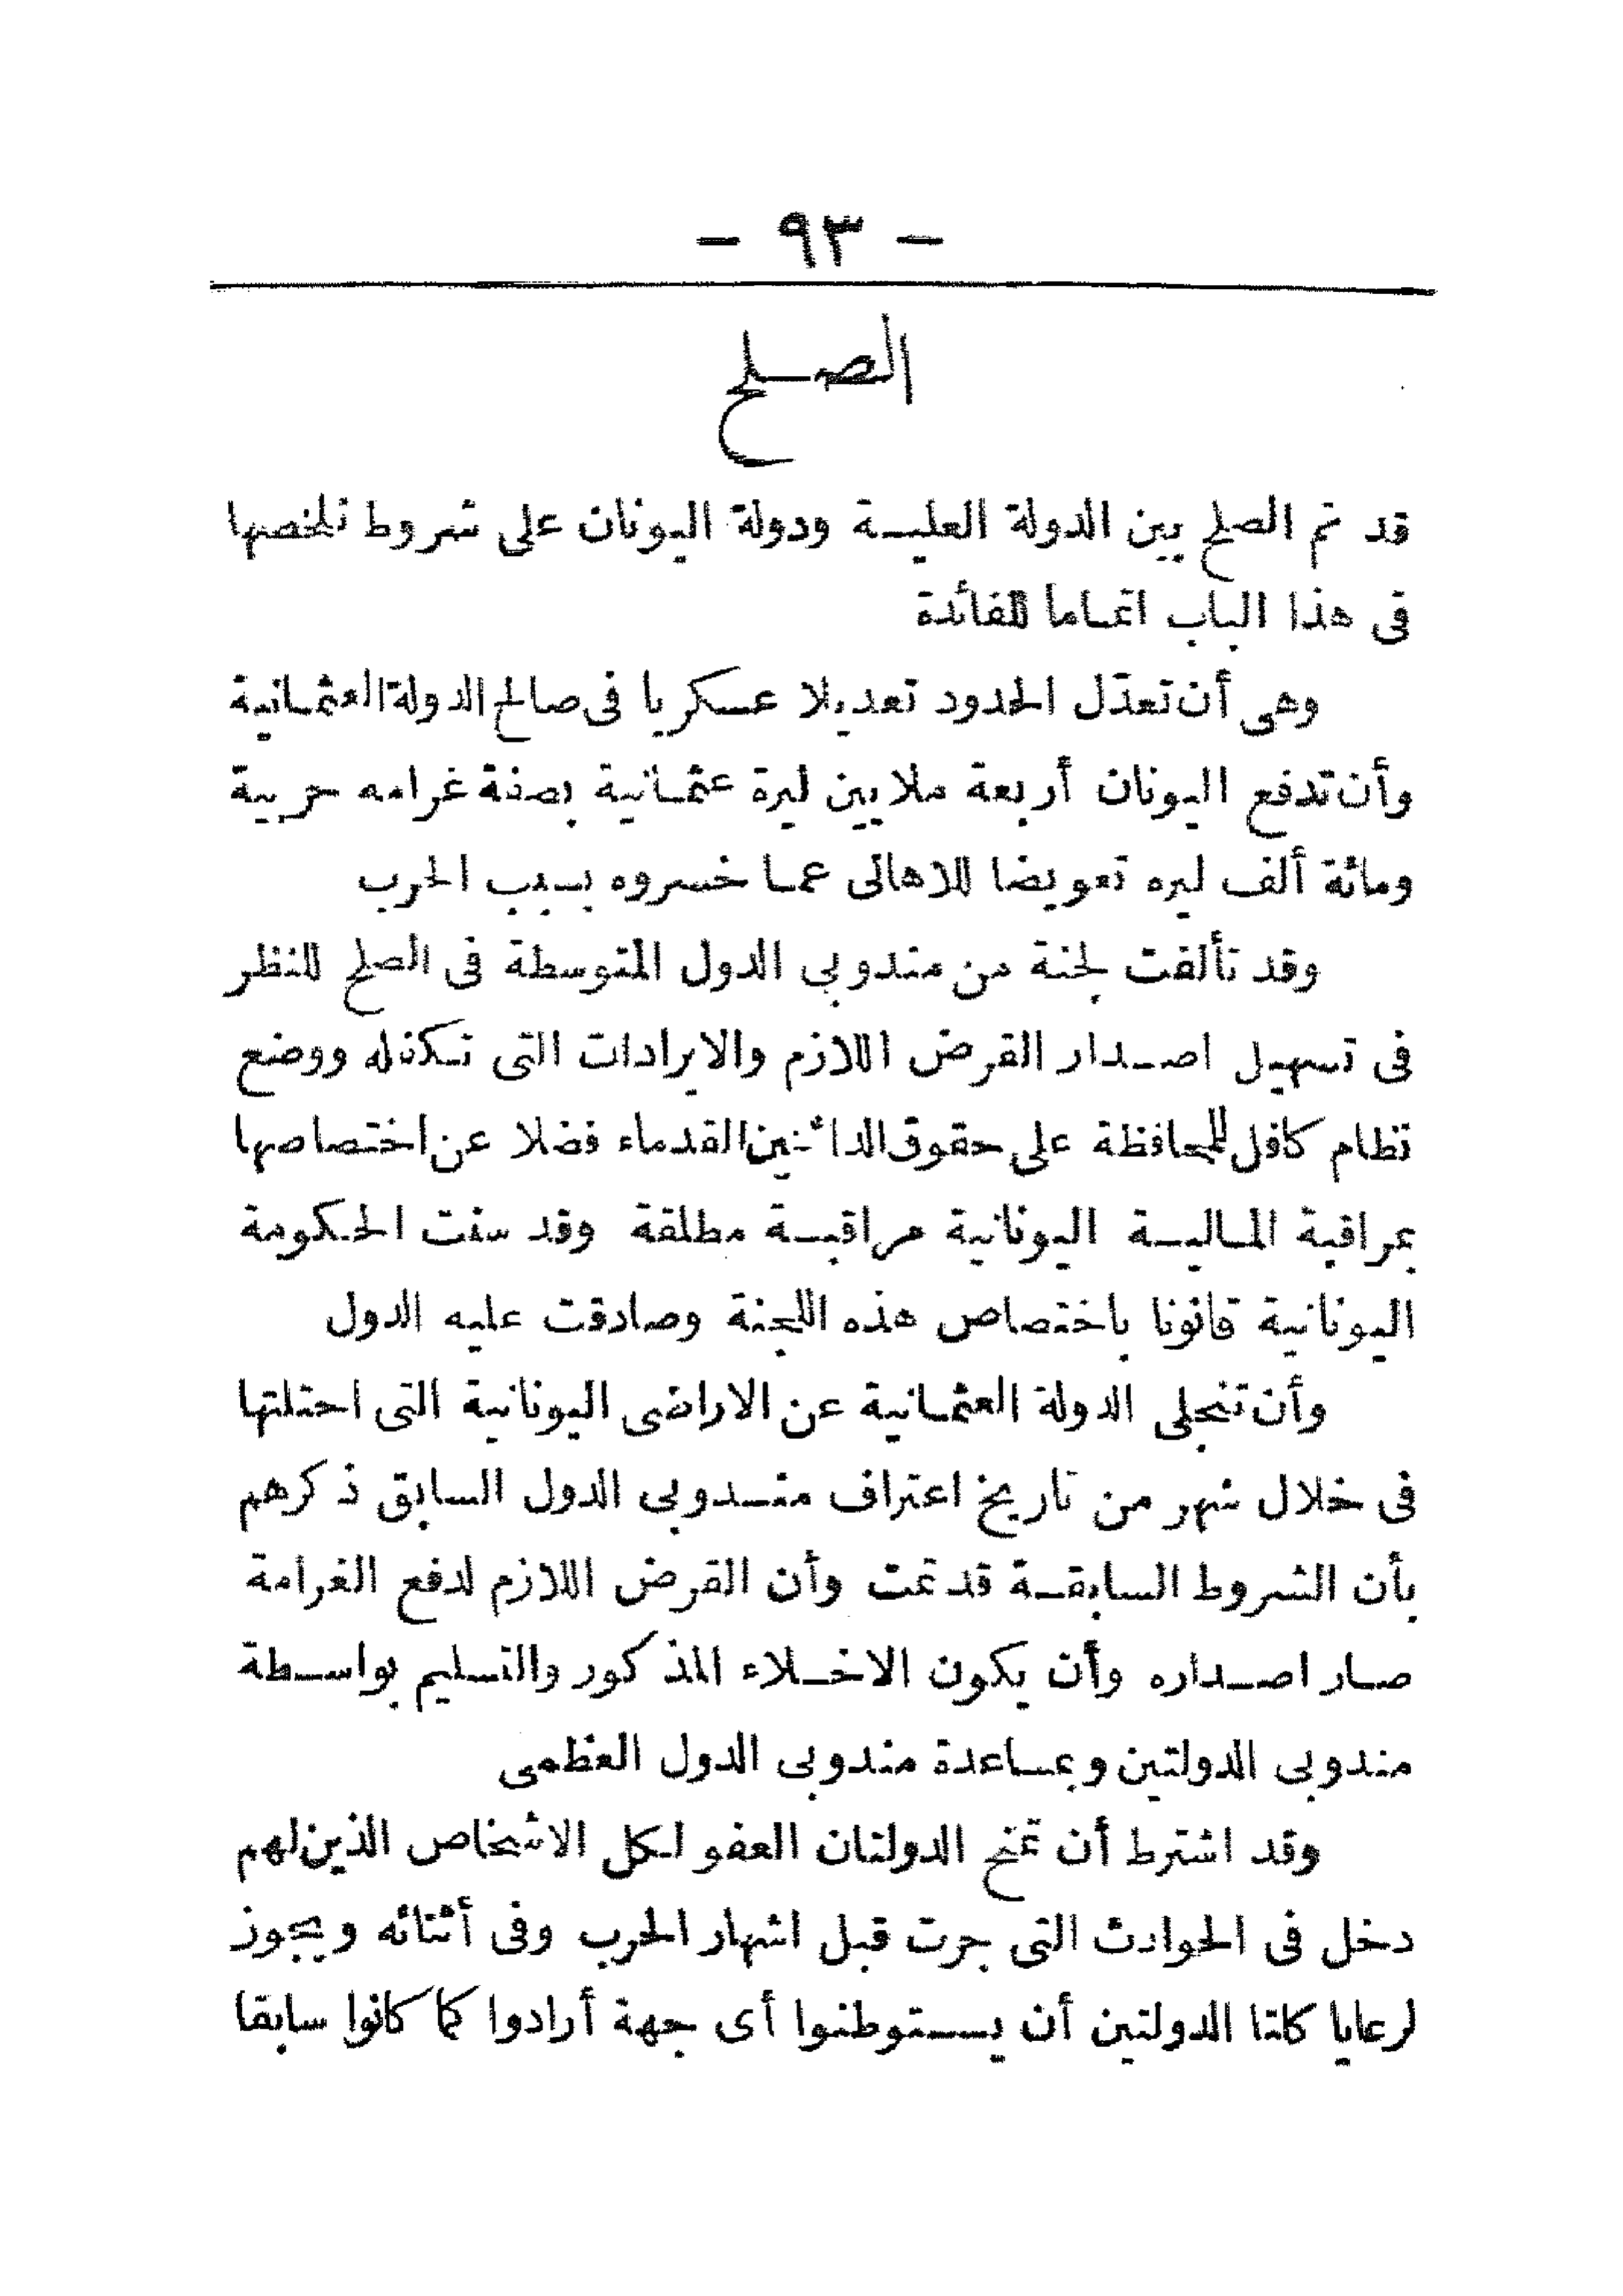 — ٩٣ —
الصلح
قد تم الصلح بين الدولة العلية ودولة اليونان على شروط نلخصها
فى هذا الباب اتماما للفائدة
وهى أن تعدّل الحدود تعديلا عسكريا فى صالح الدولة العثمانية
وأن تدفع اليونان أربعة ملايين ليرة عثمانية بصفة غرامه حربية
ومائة ألف ليره تعويضا للاهالى عما خسروه بسبب الحرب
وقد تألفت لجنة من مندوبى الدول المتوسطة فى الصلح للنظر
فى تسهيل اصدار القرض اللازم والايرادات التى تكفله ووضع
نظام كافل للمحافظة على حقوق الدائنين القدماء فضلا عن اختصاصها
بمراقبة المالية اليونانية مراقبة مطلقة وقد سنت الحكومة
اليونانية قانونا باختصاص هذه اللجنة وصادقت عليه الدول
وأن تنجلى الدولة العثمانية عن الاراضى اليونانية التى احتلتها
فى خلال شهر من تاريخ اعتراف مندوبى الدول السابق ذكرهم
بأن الشروط السابقة قد تمت وأن القرض اللازم لدفع الغرامة
صار اصداره وأن يكون الاخلاء المذكور والتسليم بواسطة
مندوبى الدولتين وبمساعدة مندوبى الدول العظمى
وقد اشترط أن تمنح الدولتان العفو لكل الاشخاص الذين لهم
دخل فى الحوادث التى جرت قبل اشهار الحرب وفى أثنائه ويجوز
لرعايا كلتا الدولتين أن يستوطنوا أى جهة أرادوا كما كانوا سابقا